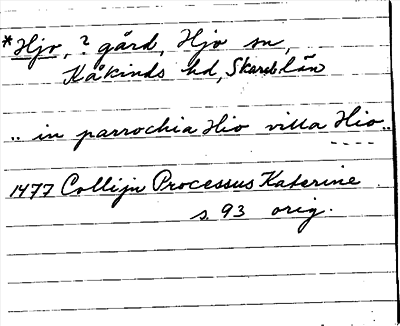 *Hjo, ? gård, Hjo sn,
Kåkinds hd, Skarab. län
.. in parrochia Hio villa Hio ..
1477 Collijn Processus Katerine
s. 93 orig.